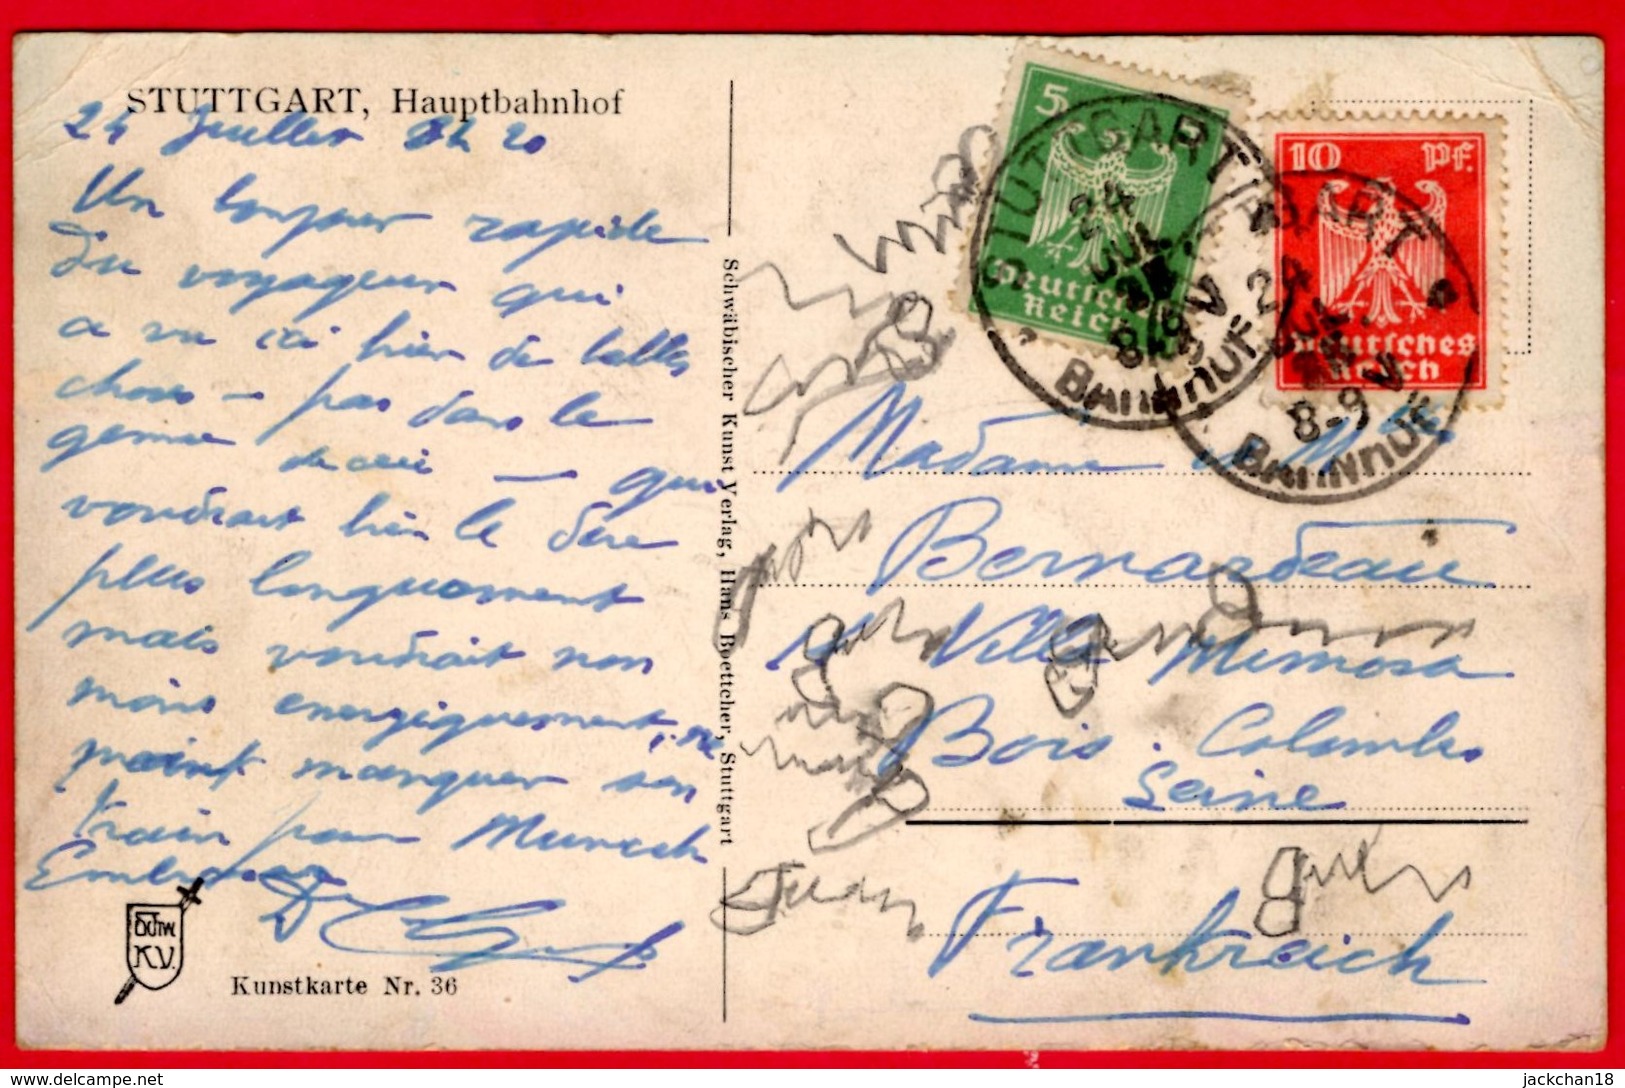 STUTTGART, Hauptbahnhof
24 Juillet 8h 20
Un bonjour rapide
du voyageur qui
a vu ici hier de belles
choses — pas dans le
genre — qui
voudrait bien le dire
plus longuement
mais voudrait non
moins énergiquement, ne
point manquer son
train pour Munich
Embrasse
Schw.
K.V.
Kunstkarte Nr. 36
Schwäbischer Kunst Verlag, Hans Boettcher, Stuttgart
5
Deutsches
Reich
10 Pf.
Deutsches
Reich
STUTTGART
24
JUL
8-9 V
BAHNHOF
STUTTGART
24
JUL
8-9 V
BAHNHOF
Madame et Mr
Bernardeau
Villa Mimosa
Bois. Colombes
Seine
Frankreich
delcampe.net
jackchan18